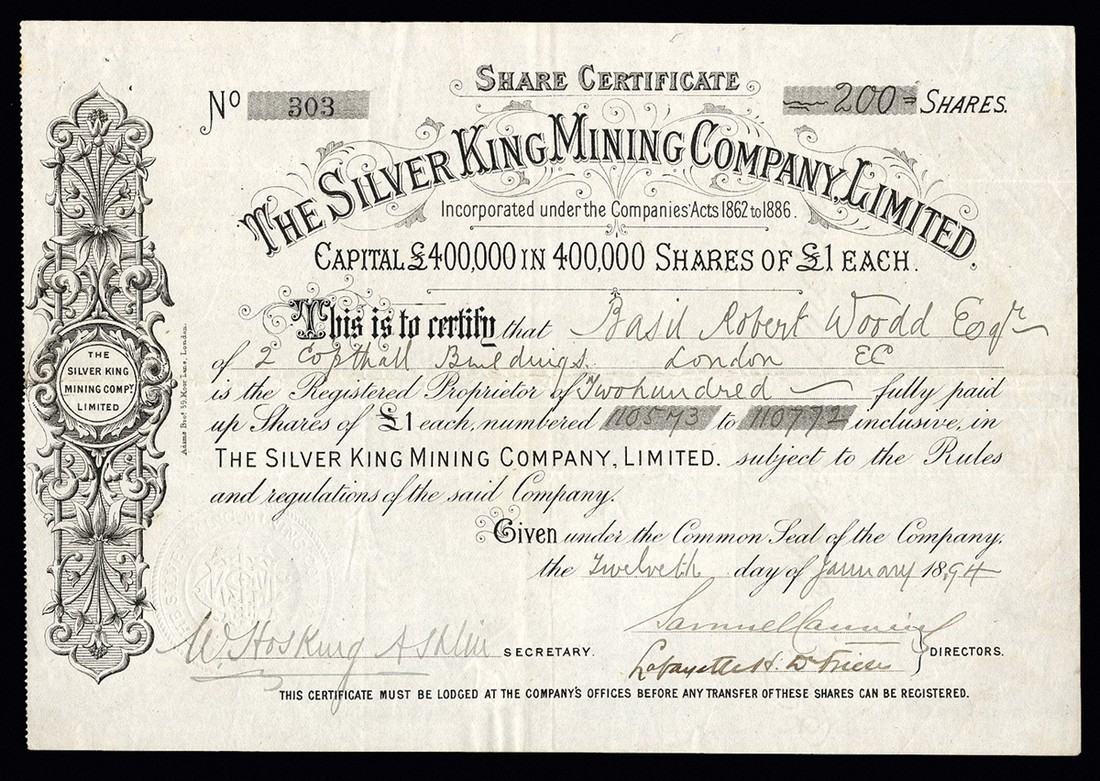 SHARE CERTIFICATE
No 303
200 SHARES.
THE SILVER KING MINING COMPANY, LIMITED.
Incorporated under the Companies' Acts 1862 to 1886.
CAPITAL £400,000 IN 400,000 SHARES OF £1 EACH.
This is to certify that Basil Robert Woodd Esqre
of 2 Copthall Buildings. London EC
is the Registered Proprietor of Two hundred fully paid
up Shares of £1 each, numbered 110573 to 110772 inclusive, in
THE SILVER KING MINING COMPANY, LIMITED. subject to the Rules
and regulations of the said Company.
Given under the Common Seal of the Company,
the Twelveth day of January 1894
Samuel Canning
W. Hosking SECRETARY.
Lafayette H. De Friese DIRECTORS.
THIS CERTIFICATE MUST BE LODGED AT THE COMPANY'S OFFICES BEFORE ANY TRANSFER OF THESE SHARES CAN BE REGISTERED.
THE
SILVER KING
MINING COMPY.
LIMITED
Adams Bros. 59, Moor Lane, London.